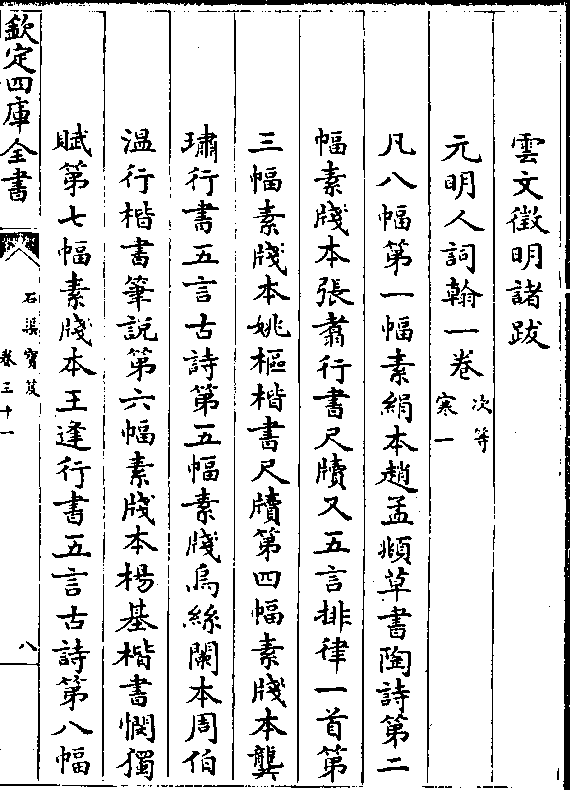 雲文徵明諸跋
元明人詞翰一卷 次等 寒一
凡八幅第一幅素絹本趙孟頫草書陶詩第二
幅素牋本張翥行書尺牘又五言排律一首第
三幅素牋本姚樞楷書尺牘第四幅素牋本龔
璛行書五言古詩第五幅素牋烏絲闌本周伯
溫行楷書筆説第六幅素牋本楊基楷書憫獨
賦第七幅素牋本王逢行書五言古詩第八幅
欽定四庫全書
石渠寶笈
卷三十一
八